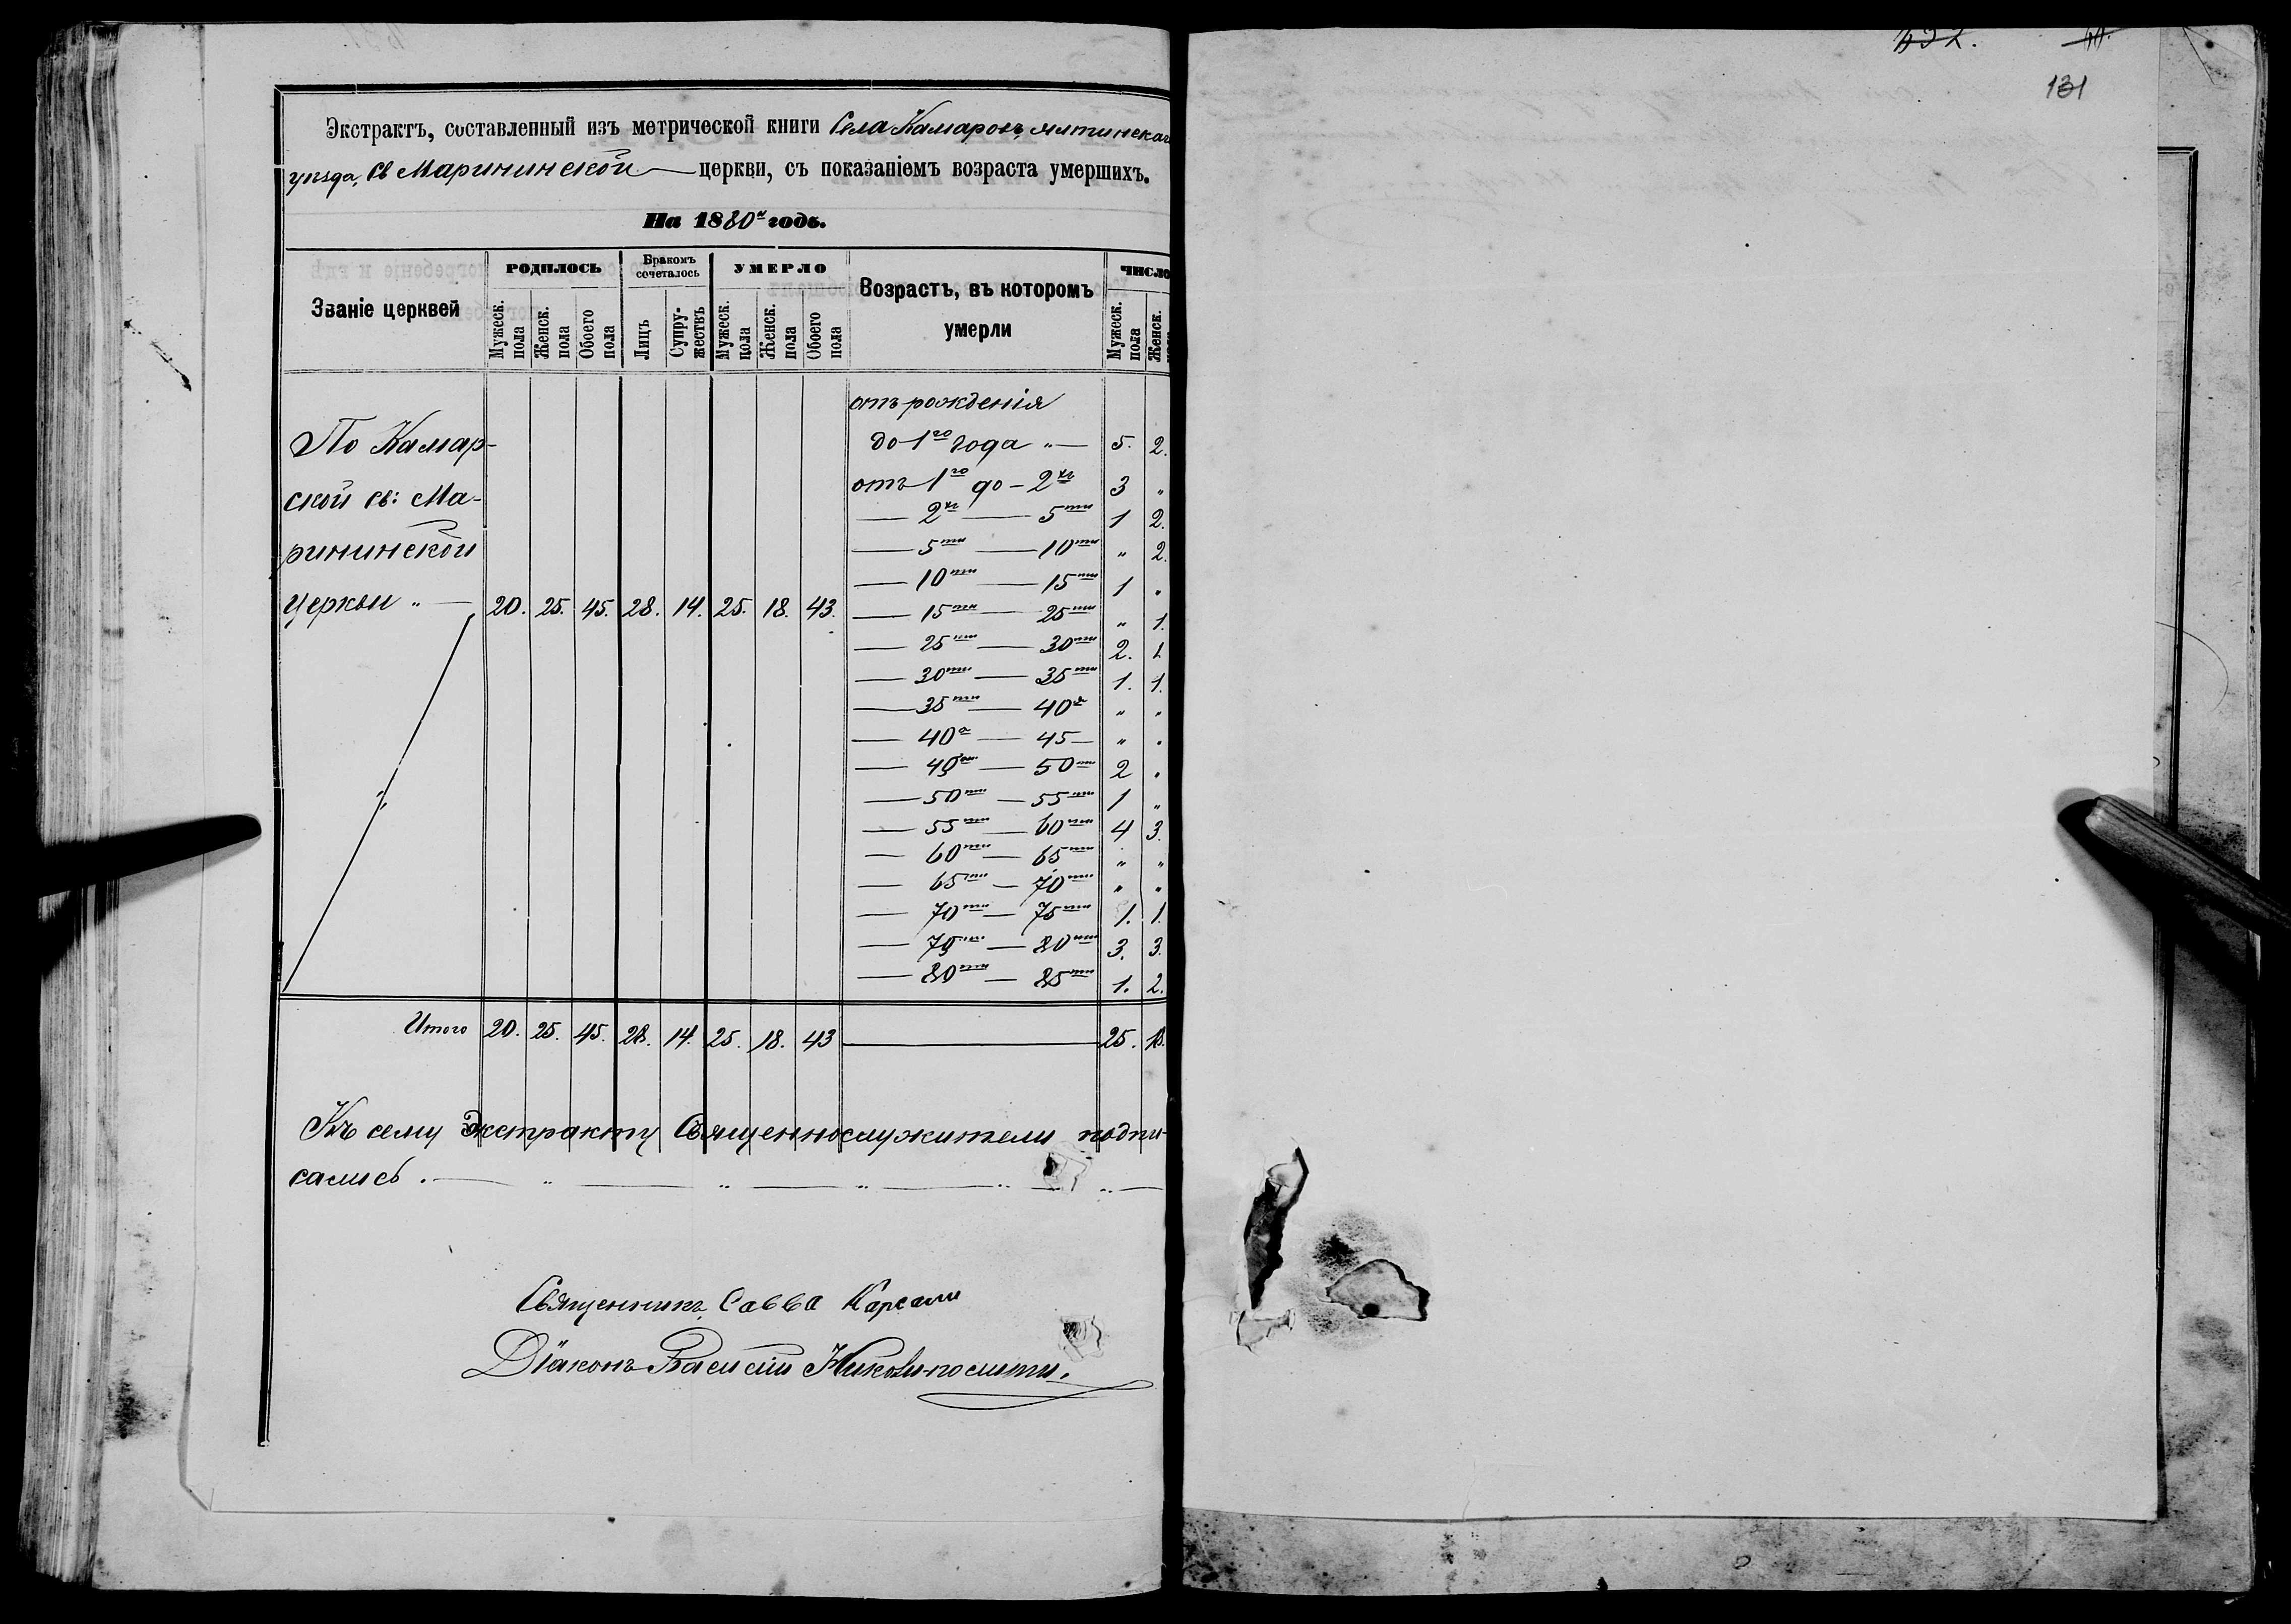 Экстрактъ, составленный изъ метрической книги Села Камаровъ, ялтинскаго
уѣзда, св Марининской — церкви, съ показаніемъ возраста умершихъ.
На 1880й годъ.
Званіе церквей
РОДИЛОСЬ
Бракомъ сочеталось
УМЕРЛО
Возрастъ, въ которомъ умерли
ЧИСЛО
Мужеск. пола Женск. пола Обоего пола Лицъ Супружествъ Мужеск. пола Женск. пола Обоего пола Мужеск. пола Женск.
По Камар-
ской св: Ма-
рининской
Церкви „ — 20. 25. 45. 28. 14. 25. 18. 43.
отъ рожденія
до 1го года „ — 5. 2.
отъ 1го до – 2хъ 3 „
— 2хъ — 5ти 1 2.
— 5ти — 10ти „ 2.
— 10ти — 15ти 1 „
— 15ти — 25ти „ 1.
— 25ти — 30ти 2. 1.
— 30ти — 35ти 1. 1.
— 35ти — 40а „ „
— 40а — 45 — „ „
— 45ти — 50ти 2 „
— 50ти — 55ти 1 „
— 55ти — 60ти 4 3.
— 60ти — 65ти „ „
— 65ти — 70ти „ „
— 70ти — 75ти 1. 1.
— 75ти — 80ти 3. 3.
— 80ти — 85ти 1. 2.
Итого 20. 25. 45. 28. 14. 25. 18. 43 — 25. 18.
Къ сему Экстракту Священнослужители подпи-
сались. — „ — „ — „ — „ — „ —
Священникъ Савва
Діаконъ Василій
131